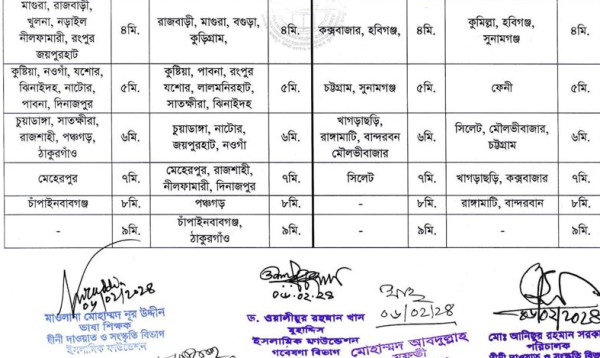 মাগুরা, রাজবাড়ী,
খুলনা, নড়াইল
নীলফামারী, রংপুর
জয়পুরহাট
৪মি.
রাজবাড়ী, মাগুরা, বগুড়া,
কুড়িগ্রাম,
৪মি.
কক্সবাজার, হবিগঞ্জ,
৪মি.
কুমিল্লা, হবিগঞ্জ,
সুনামগঞ্জ
৪মি.
কুষ্টিয়া, নওগাঁ, যশোর,
ঝিনাইদহ, নাটোর,
পাবনা, দিনাজপুর
৫মি.
কুষ্টিয়া, পাবনা, রংপুর
যশোর, লালমনিরহাট,
সাতক্ষীরা, ঝিনাইদহ
৫মি.
চট্টগ্রাম, সুনামগঞ্জ
৫মি.
ফেনী
৫মি.
চুয়াডাঙ্গা, সাতক্ষীরা,
রাজশাহী, পঞ্চগড়,
ঠাকুরগাঁও
৬মি.
চুয়াডাঙ্গা, নাটোর,
জয়পুরহাট, নওগাঁ
৬মি.
খাগড়াছড়ি,
রাঙ্গামাটি, বান্দরবন
মৌলভীবাজার
৬মি.
সিলেট, মৌলভীবাজার,
চট্টগ্রাম
৬মি.
মেহেরপুর
৭মি.
মেহেরপুর, রাজশাহী,
নীলফামারী, দিনাজপুর
৭মি.
সিলেট
৭মি.
খাগড়াছড়ি, কক্সবাজার
৭মি.
চাঁপাইনবাবগঞ্জ
৮মি.
পঞ্চগড়
৮মি.
-
৮মি.
রাঙ্গামাটি, বান্দরবান
৮মি.
-
৯মি.
চাঁপাইনবাবগঞ্জ,
ঠাকুরগাঁও
৯মি.
-
৯মি.
-
৯মি.
০৬/০২/২৪
মাওলানা মোহাম্মদ নূর উদ্দীন
ভাষা শিক্ষক
দ্বীনী দাওয়াত ও সংস্কৃতি বিভাগ
ইসলামিক ফাউন্ডেশন
০৬.০২.২৪
ড. ওয়ালীয়ুর রহমান খান
মুহাদ্দিস
ইসলামিক ফাউন্ডেশন
গবেষণা বিভাগ
০৬/০২/২৪
মোহাম্মদ আবদুল্লাহ
মুফতী
০৬/০২/2024
মোঃ আনিছুর রহমান সরকা
পরিচালক
দ্বীনী দাওয়াত ও সংস্কৃতি বি